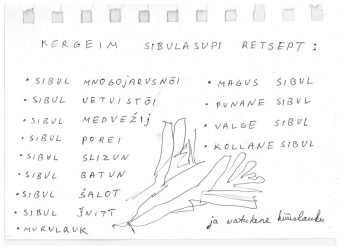 KERGEIM SIBULASUPI RETSEPT:
• SIBUL MNOGOJARUSNÕI
• SIBUL VETVISTÕI
• SIBUL MEDVEŽIJ
• SIBUL POREI
• SIBUL SLIZUN
• SIBUL BATUN
• SIBUL ŠALOT
• SIBUL ŠNITT
• MURULAUK
• MAGUS SIBUL
• PUNANE SIBUL
• VALGE SIBUL
• KOLLANE SIBUL
ja natukene küüslauku